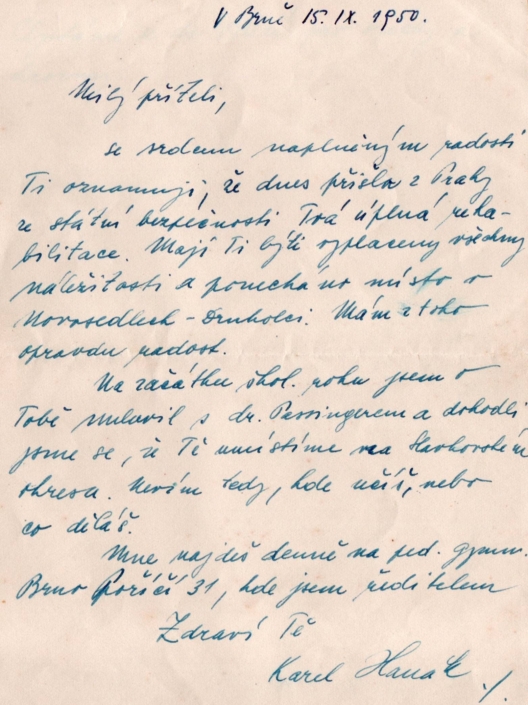 V Brně 15. IX. 1950.
Milý příteli,
se srdcem naplněným radostí
Ti oznamuji, že dnes přišla z Prahy
ze státní bezpečnosti Tvá úplná reha-
bilitace. Mají Ti býti vyplaceny všechny
náležitosti a ponecháno místo v
Novosedlech - Drnholci. Mám z toho
opravdu radost.
Na začátku škol. roku jsem o
Tobě mluvil s dr. Passingerem a dohodli
jsme se, že Tě umístíme na Slavkovském
okrese. Nevím tedy, kde učíš, nebo
co děláš.
Mne najdeš denně na ped. gymn.
Brno Poříčí 31, kde jsem ředitelem
Zdraví Tě
Karel Hanák